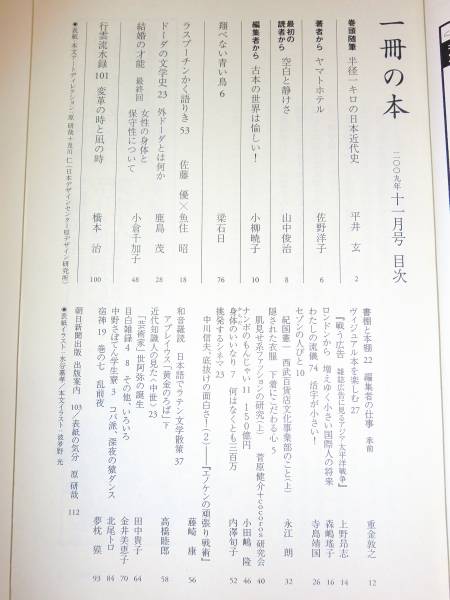 一冊の本
二〇〇九年 十一月号 目次
巻頭随筆 半径一キロの日本近代史 平井 玄 2
著者から ヤマトホテル 佐野洋子 6
最初の読者から 空白と静けさ 山中俊治 8
編集者から 古本の世界は愉しい! 小柳暁子 10
翔べない青い鳥 6 梁石日 76
ラスプーチンかく語りき 53 佐藤 優×魚住 昭 18
ドーダの文学史 23 外ドーダとは何か 鹿島 茂 28
結婚の才能 最終回 女性の身体と保守性について 小倉千加子 48
行雲流水録 101 変革の時と凪の時 橋本 治 100
●表紙・本文アートディレクション/原 研哉+及川 仁(日本デザインセンター原デザイン研究所)
書棚と本棚 22 編集者の仕事 承前 重金敦之 12
ヴィジュアル本を楽しむ 27
『戦う広告 雑誌広告に見るアジア太平洋戦争』 上野昂志 14
ロンドンから 増えゆく小さい国際人の将来 森嶋瑤子 16
わたしの流儀 74 活字が小さい! 寺島靖国 26
セゾンの人びと 10
紀国憲一 西武百貨店文化事業部のこと(上) 永江 朗 32
隠された衣服 下着にこだわる心 5
肌見せ系ファッションの研究(上) 菅原健介+cocoros研究会 40
ナンボのもんじゃい 11 一五〇億円 小田嶋 隆 46
身体のいいなり 7 何はなくとも三百万 内澤旬子 52
挑発するシネマ 23
中川信夫・底抜けの面白さ!(2)――『エノケンの頑張り戦術』 藤崎 康 56
和音羅読 日本語でラテン文学散策 37
アプレイウス「黄金のろば」下 高橋睦郎 58
近代知識人の見た〈中世〉 23
「芸術家」世阿弥の誕生 田中貴子 64
目白雑録 4 8 その他、いろいろ 金井美恵子 70
中野さぼてん学生寮 3 コバ派、深夜の猿ダンス 北尾トロ 84
宿神 19 巻の七 乱前夜 夢枕 獏 93
朝日新聞出版 出版案内 103/表紙の気分 原 研哉 112
●表紙イラスト・水谷嘉孝/本文イラスト・波多野 光